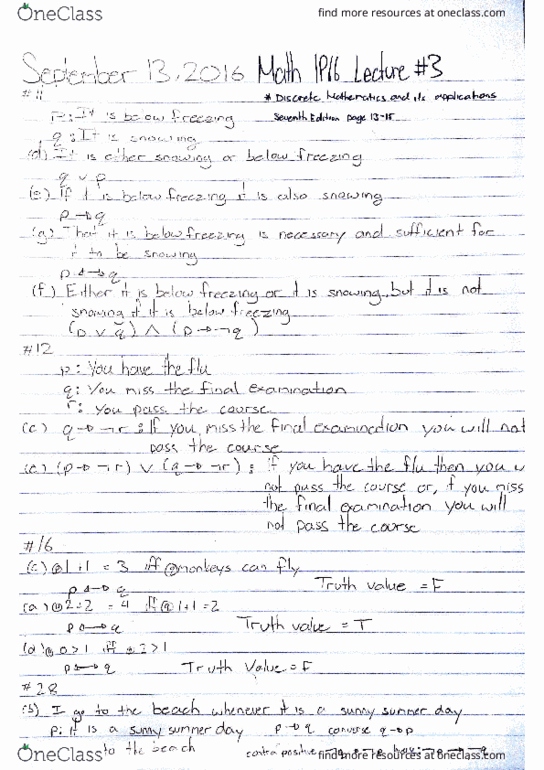 OneClass
find more resources at oneclass.com
September 13, 2016 Math 1P66 Lecture #3
#11
* Discrete Mathematics and its applications
p: It is below freezing
Seventh Edition page 13-15
q: It is snowing
(d) It is either snowing or below freezing
q ∨ p
(e) If it is below freezing it is also snowing
p → q
(g) That it is below freezing is necessary and sufficient for
it to be snowing
p ↔ q
(f) Either it is below freezing or it is snowing, but it is not
snowing if it is below freezing
(p ∨ q) ∧ (p → ¬q)
#12
p: You have the flu
q: You miss the final examination
r: you pass the course
(c) q → ¬r : If you miss the final examination you will not
pass the course
(e) (p → ¬r) ∨ (q → ¬r) : if you have the flu then you w
not pass the course or, if you miss
the final examination you will
not pass the course
#16
(c) 1+1 = 3 iff monkeys can fly
p ↔ q
Truth value = F
(a) 2+2 = 4 iff 1+1=2
p ↔ q
Truth value = T
(d) 0>1 iff 2>1
p ↔ q
Truth Value = F
#28
(b) I go to the beach whenever it is a sunny summer day
p: it is a sunny summer day
p → q converse q → p
OneClass
to the beach
contrapositive
find more resources at oneclass.com